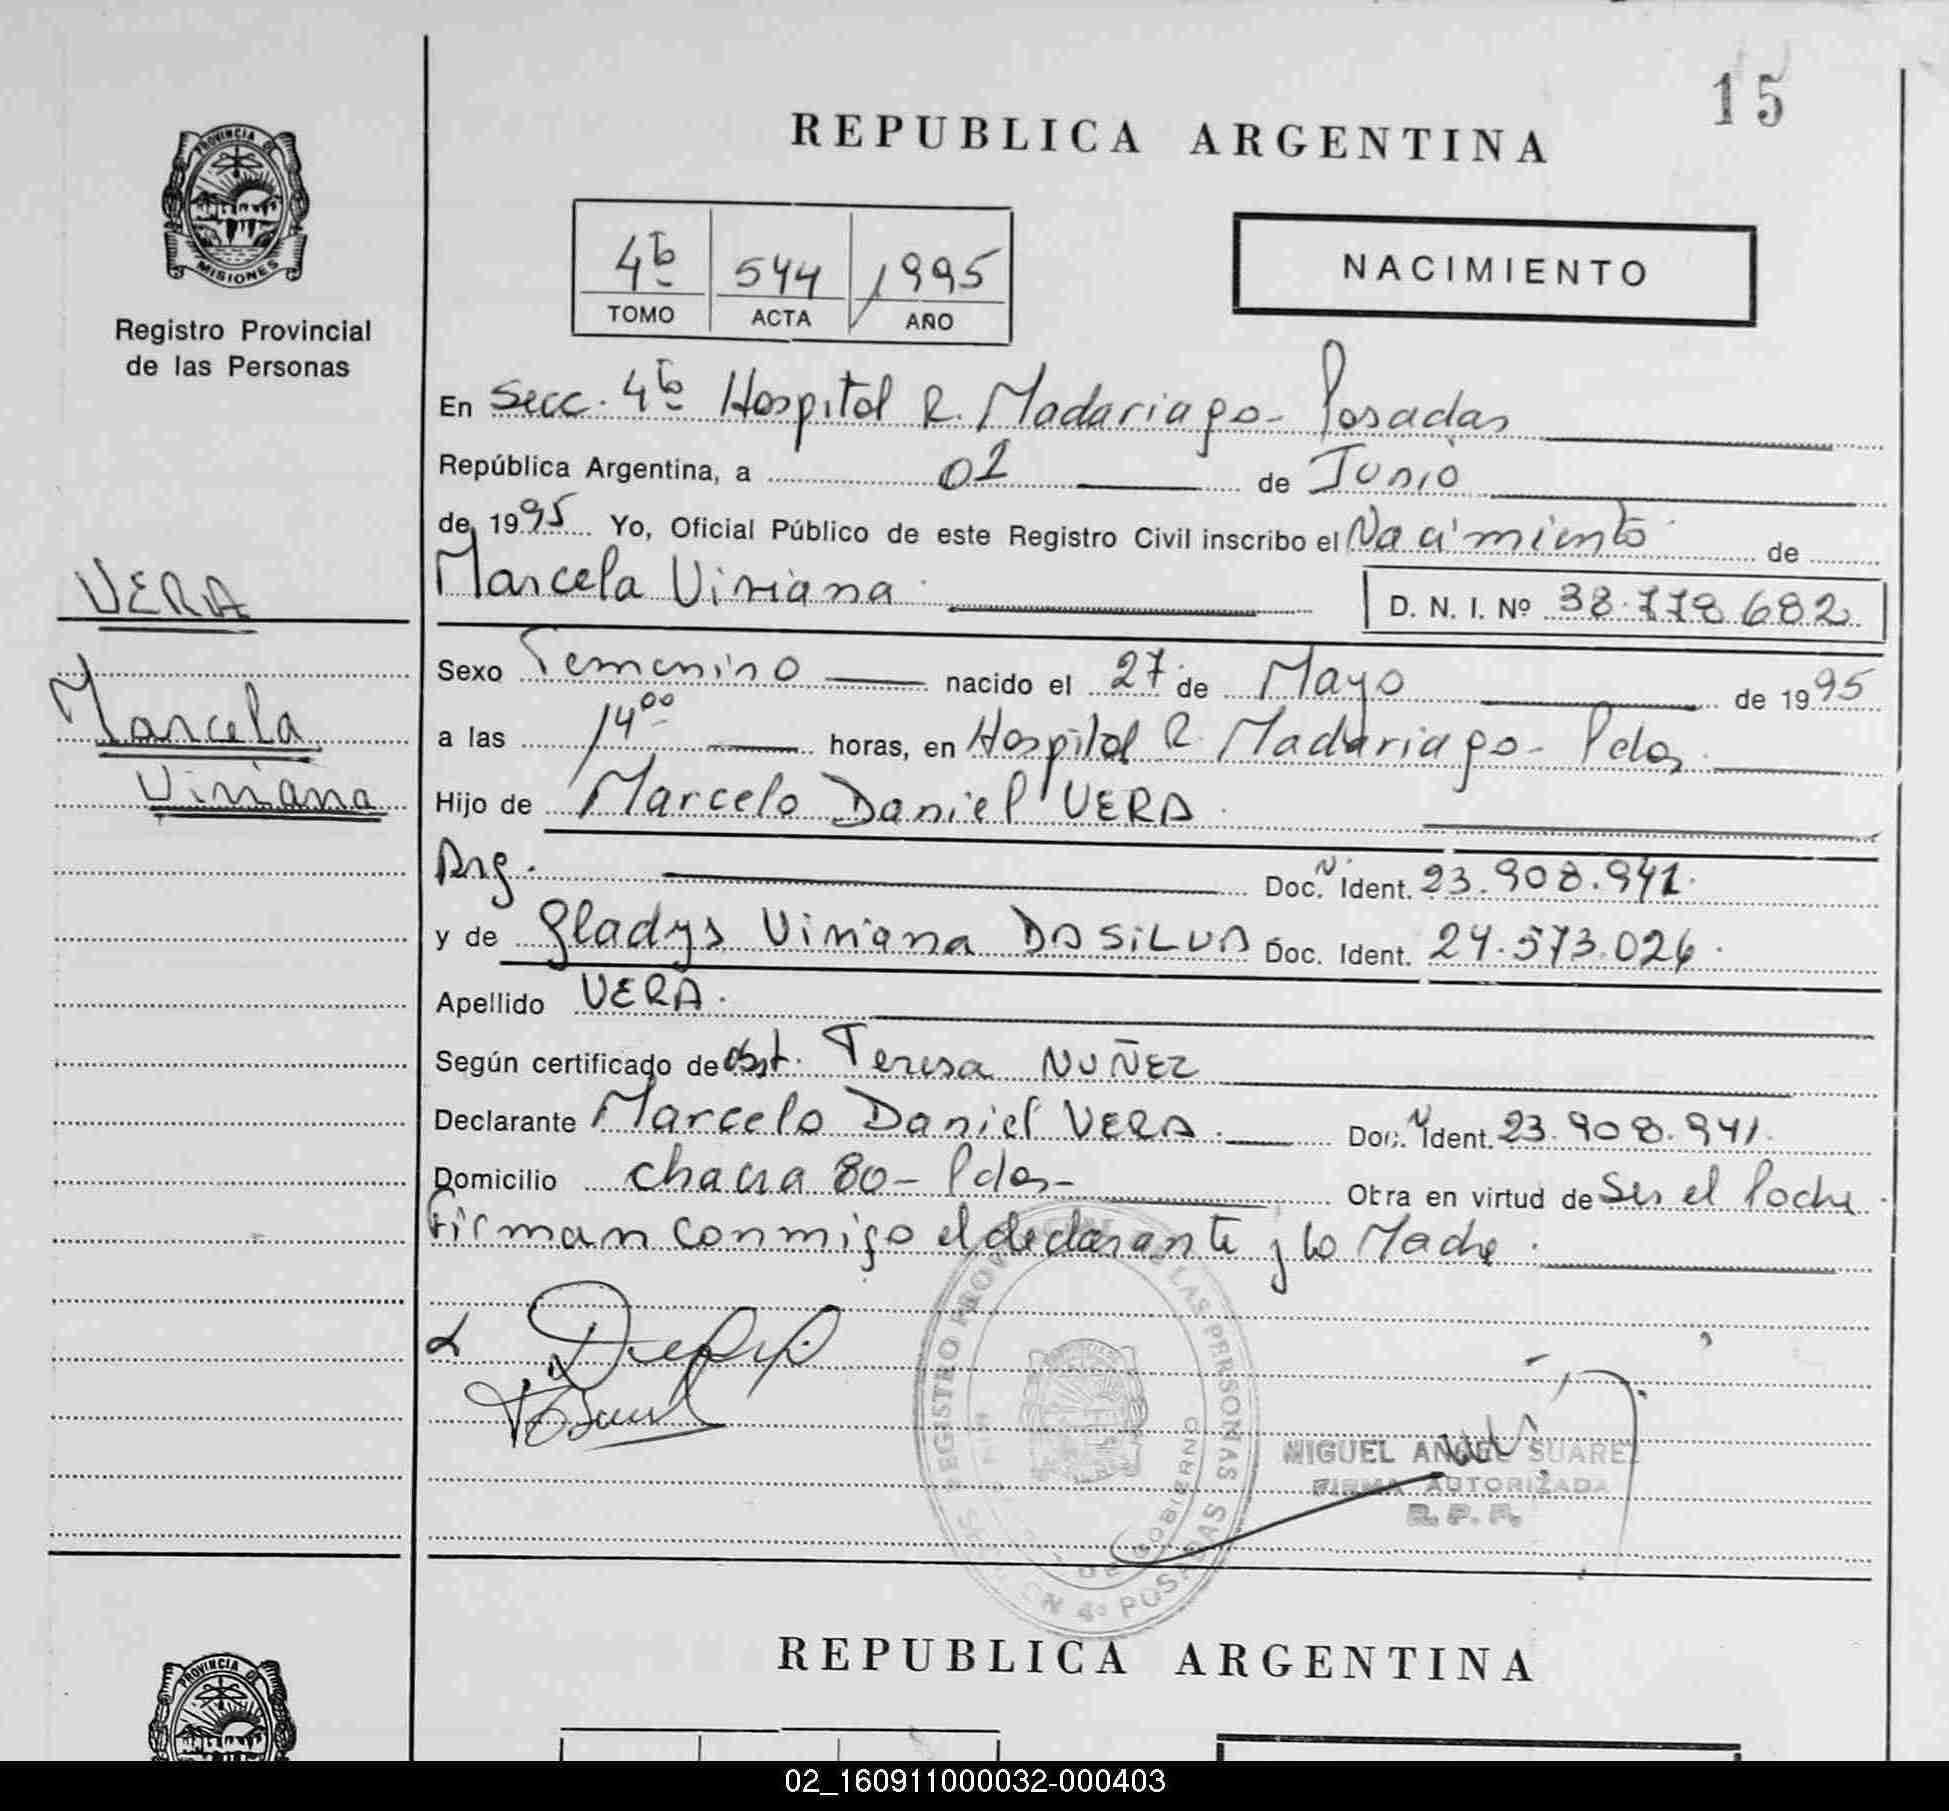 15
REPUBLICA ARGENTINA
PROVINCIA DE
MISIONES
Registro Provincial
de las Personas
4ta 544 1995
TOMO ACTA AÑO
NACIMIENTO
En Secc. 4ta Hospital R. Madariaga - Posadas
República Argentina, a 02 de Junio
de 1995 Yo, Oficial Público de este Registro Civil inscribo el Nacimiento de
Marcela Viviana D. N. I. Nº 38.778.682
VERA
Marcela
Viviana
Sexo Femenino nacido el 27 de Mayo de 1995
a las 14 00 horas, en Hospital R. Madariaga - Pdas
Hijo de Marcelo Daniel VERA
Arg. Doc. N. Ident. 23.908.941.
y de Gladys Viviana DASILVA Doc. Ident. 24.573.026.
Apellido VERA.
Según certificado de Obst. Teresa NUÑEZ
Declarante Marcelo Daniel VERA. Doc. N Ident. 23.908.941.
Domicilio chacra 80 - Pdas - Obra en virtud de Ser el Padre.
Firman conmigo el declarante y la Madre.
REGISTRO PROVINCIAL DE LAS PERSONAS
DE GOBIERNO
4ª POSADAS
MIGUEL ANGEL SUAREZ
FIRMA AUTORIZADA
R. P. P.
REPUBLICA ARGENTINA
PROVINCIA DE
02_160911000032-000403